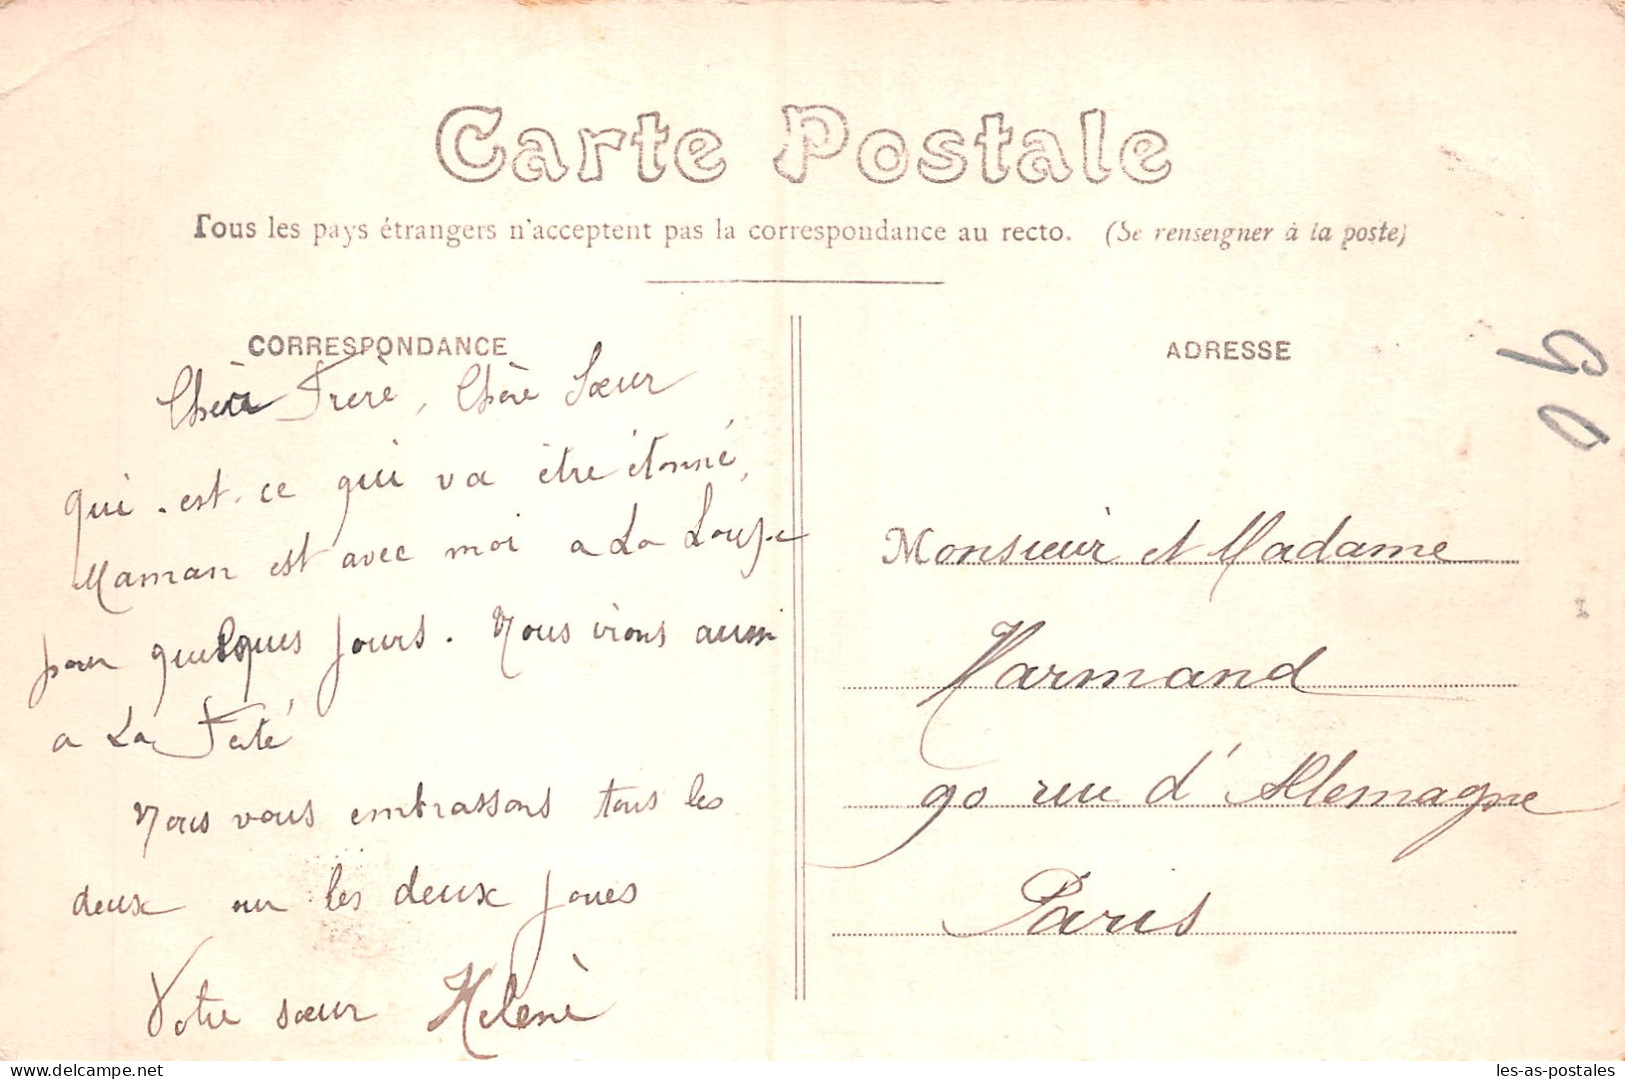 Carte Postale
Tous les pays étrangers n'acceptent pas la correspondance au recto. (Se renseigner à la poste)
CORRESPONDANCE
Chèr Frère, Chère Sœur
qui-est-ce qui va être étonné,
Maman est avec moi a La Loupe
pour quelques jours. Nous irions aussi
a La Ferté
Nous vous embrassons tous les
deux sur les deux joues
Votre sœur Helenè
ADRESSE
Monsieur et Madame
Harmand
90 rue d'Allemagne
Paris
les-as-postales
delcampe.net